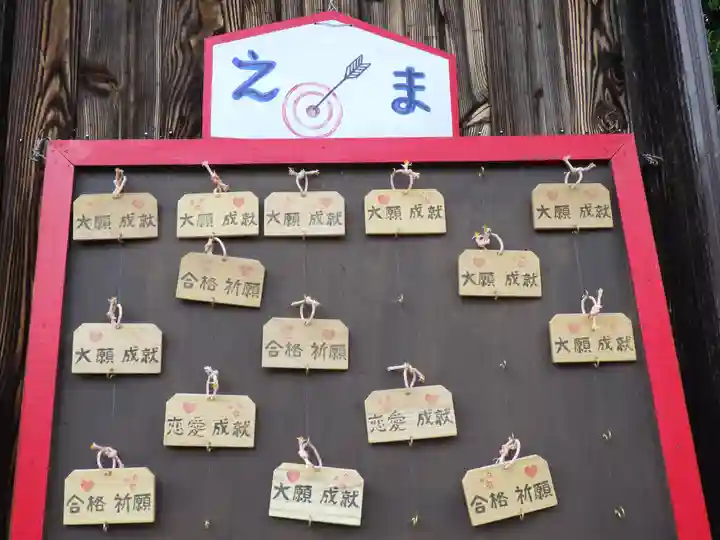 えま
大願 成就
大願 成就
大願 成就
大願 成就
大願 成就
合格 祈願
大願 成就
大願 成就
合格 祈願
大願 成就
恋愛 成就
恋愛 成就
合格 祈願
大願 成就
合格 祈願